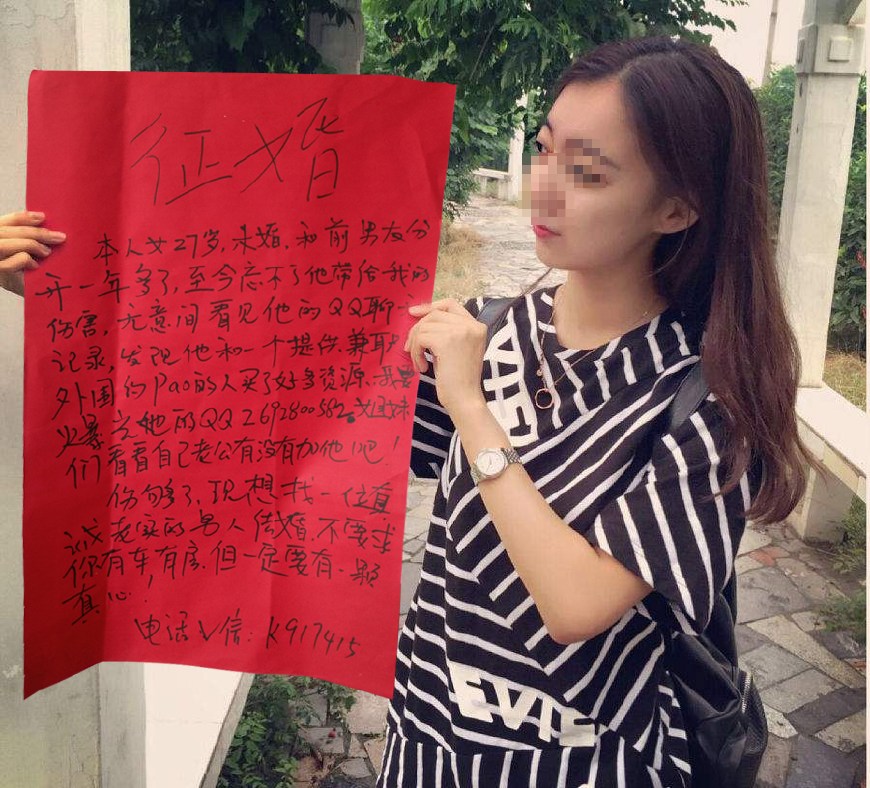 征婚
本人女27岁,未婚,和前男友分
开一年多了,至今忘不了他带给我的
伤害,无意间看见他的QQ聊天
记录,发现他和一个提供兼职
外围的Pao的人买了好多资源,我要
曝光她的QQ2692800582。姐妹
们看看自己老公有没有加他吧!
伤够了,现想找一位真
诚老实的男人结婚,不要求
你有车有房,但一定要有一颗
真心!
电话V信:K917415
EVIE